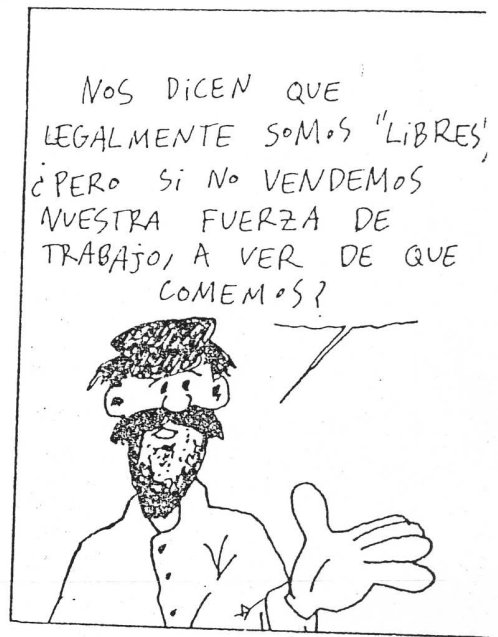 NOS DICEN QUE
LEGALMENTE SOMOS "LIBRES",
¿PERO SI NO VENDEMOS
NUESTRA FUERZA DE
TRABAJO, A VER DE QUE
COMEMOS?